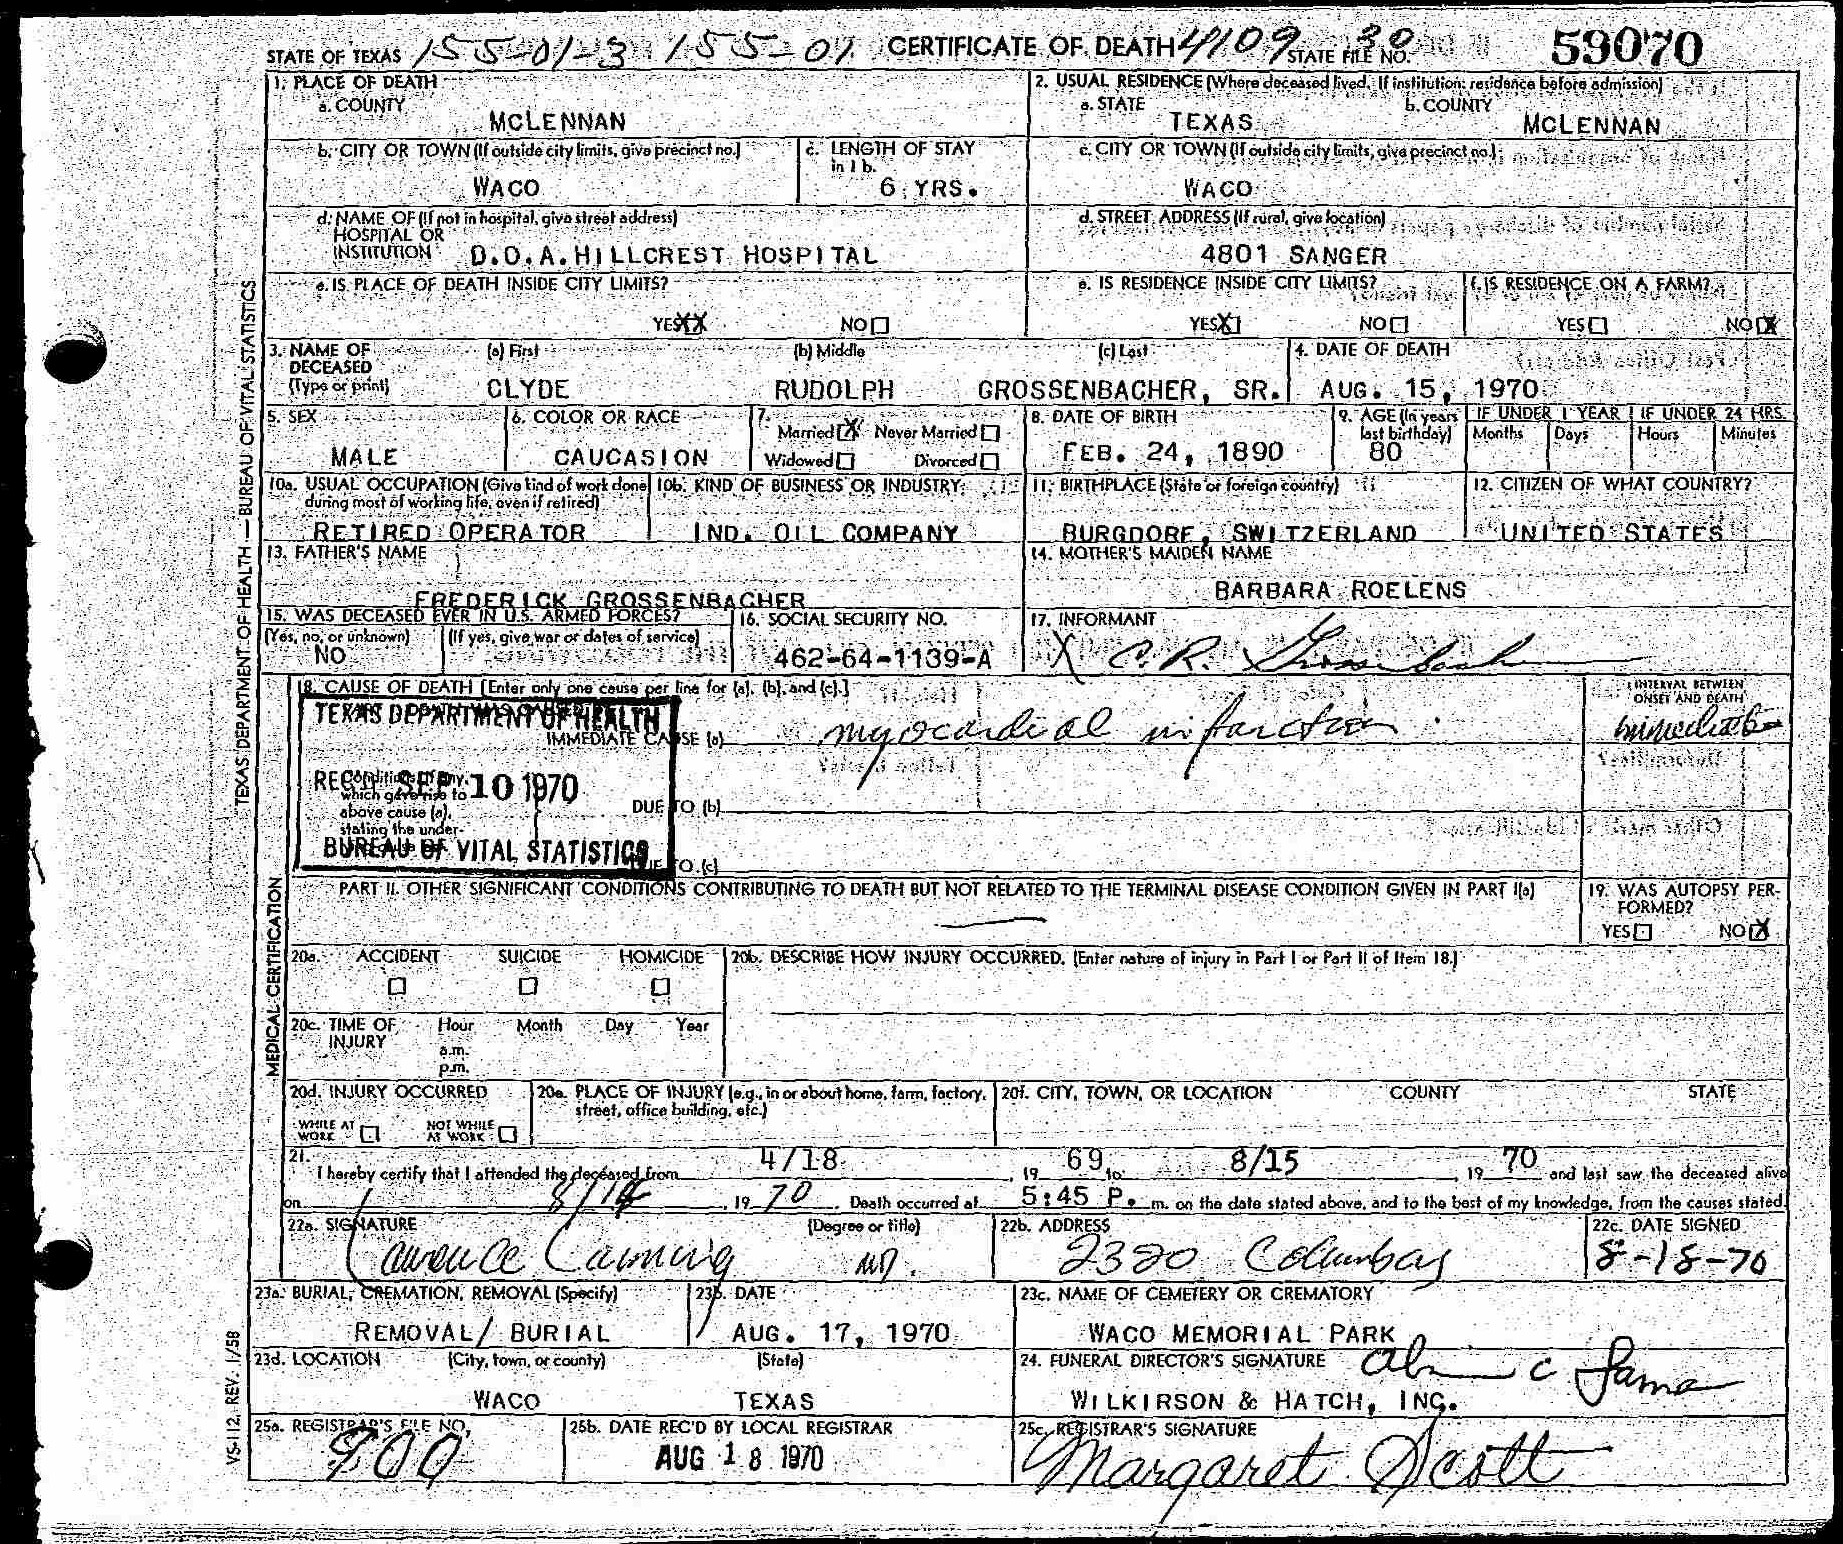 STATE OF TEXAS 155-01-3 155-01 CERTIFICATE OF DEATH 4109 30 STATE FILE NO. 59070
1. PLACE OF DEATH
a. COUNTY
MCLENNAN
2. USUAL RESIDENCE (Where deceased lived. If institution: residence before admission)
a. STATE b. COUNTY
TEXAS MCLENNAN
b. CITY OR TOWN (If outside city limits, give precinct no.)
WACO
c. LENGTH OF STAY
in 1 b.
6 YRS.
c. CITY OR TOWN (If outside city limits, give precinct no.)
WACO
d. NAME OF (If not in hospital, give street address)
HOSPITAL OR
INSTITUTION D.O.A. HILLCREST HOSPITAL
d. STREET ADDRESS (If rural, give location)
4801 SANGER
e. IS PLACE OF DEATH INSIDE CITY LIMITS?
YES XX NO
e. IS RESIDENCE INSIDE CITY LIMITS?
YES X NO
f. IS RESIDENCE ON A FARM?
YES NO X
3. NAME OF
DECEASED
(Type or print)
(a) First (b) Middle (c) Last
CLYDE RUDOLPH GROSSENBACHER, SR.
4. DATE OF DEATH
AUG. 15, 1970
5. SEX
MALE
6. COLOR OR RACE
CAUCASION
7.
Married X Never Married
Widowed Divorced
8. DATE OF BIRTH
FEB. 24, 1890
9. AGE (In years
last birthday)
80
IF UNDER 1 YEAR IF UNDER 24 HRS.
Months Days Hours Minutes
10a. USUAL OCCUPATION (Give kind of work done
during most of working life, even if retired)
RETIRED OPERATOR
10b. KIND OF BUSINESS OR INDUSTRY
IND. OIL COMPANY
11. BIRTHPLACE (State or foreign country)
BURGDORF, SWITZERLAND
12. CITIZEN OF WHAT COUNTRY?
UNITED STATES
13. FATHER'S NAME
FREDERICK GROSSENBACHER
14. MOTHER'S MAIDEN NAME
BARBARA ROELENS
15. WAS DECEASED EVER IN U.S. ARMED FORCES?
(Yes, no, or unknown) (If yes, give war or dates of service)
NO
16. SOCIAL SECURITY NO.
462-64-1139-A
17. INFORMANT
X C. R. Grossenbacher
18. CAUSE OF DEATH [Enter only one cause per line for (a), (b), and (c).]
IMMEDIATE CAUSE (a) myocardial infarction
INTERVAL BETWEEN
ONSET AND DEATH
immediate
TEXAS DEPARTMENT OF HEALTH
REC'D SEP 10 1970
BUREAU OF VITAL STATISTICS
Conditions, if any,
which gave rise to
above cause (a),
stating the under-
DUE TO (b)
DUE TO (c)
PART II. OTHER SIGNIFICANT CONDITIONS CONTRIBUTING TO DEATH BUT NOT RELATED TO THE TERMINAL DISEASE CONDITION GIVEN IN PART I(a)
19. WAS AUTOPSY PER-
FORMED?
YES NO X
20a. ACCIDENT SUICIDE HOMICIDE
20b. DESCRIBE HOW INJURY OCCURRED. (Enter nature of injury in Part I or Part II of Item 18.)
20c. TIME OF Hour Month Day Year
INJURY
a.m.
p.m.
20d. INJURY OCCURRED
WHILE AT NOT WHILE
WORK AT WORK
20e. PLACE OF INJURY (e.g., in or about home, farm, factory,
street, office building, etc.)
20f. CITY, TOWN, OR LOCATION COUNTY STATE
21.
I hereby certify that I attended the deceased from 4/18, 19 69 to 8/15, 19 70 and last saw the deceased alive
on 8/14, 19 70. Death occurred at 5:45 P. m. on the date stated above, and to the best of my knowledge, from the causes stated.
22a. SIGNATURE (Degree or title)
Laurence Canning MD.
22b. ADDRESS
2320 Columbus
22c. DATE SIGNED
8-18-70
23a. BURIAL, CREMATION, REMOVAL (Specify)
REMOVAL/ BURIAL
23b. DATE
AUG. 17, 1970
23c. NAME OF CEMETERY OR CREMATORY
WACO MEMORIAL PARK
23d. LOCATION (City, town, or county) (State)
WACO TEXAS
24. FUNERAL DIRECTOR'S SIGNATURE
WILKIRSON & HATCH, INC.
25a. REGISTRAR'S FILE NO.
900
25b. DATE REC'D BY LOCAL REGISTRAR
AUG 18 1970
25c. REGISTRAR'S SIGNATURE
Margaret Scott
TEXAS DEPARTMENT OF HEALTH — BUREAU OF VITAL STATISTICS
MEDICAL CERTIFICATION
VS-112, REV. 1/58